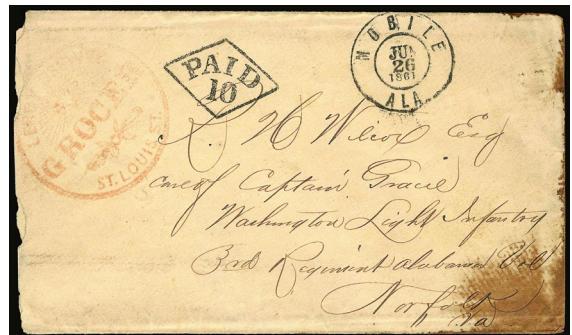 MOBILE
JUN
26
1861
ALA
PAID
10
GROCE
ST. LOUIS ST.
R. H Wilcox Esq
care of Captain Gracie
Washington Light Infantry
3rd Regiment Alabama Vol
Norfolk
Va